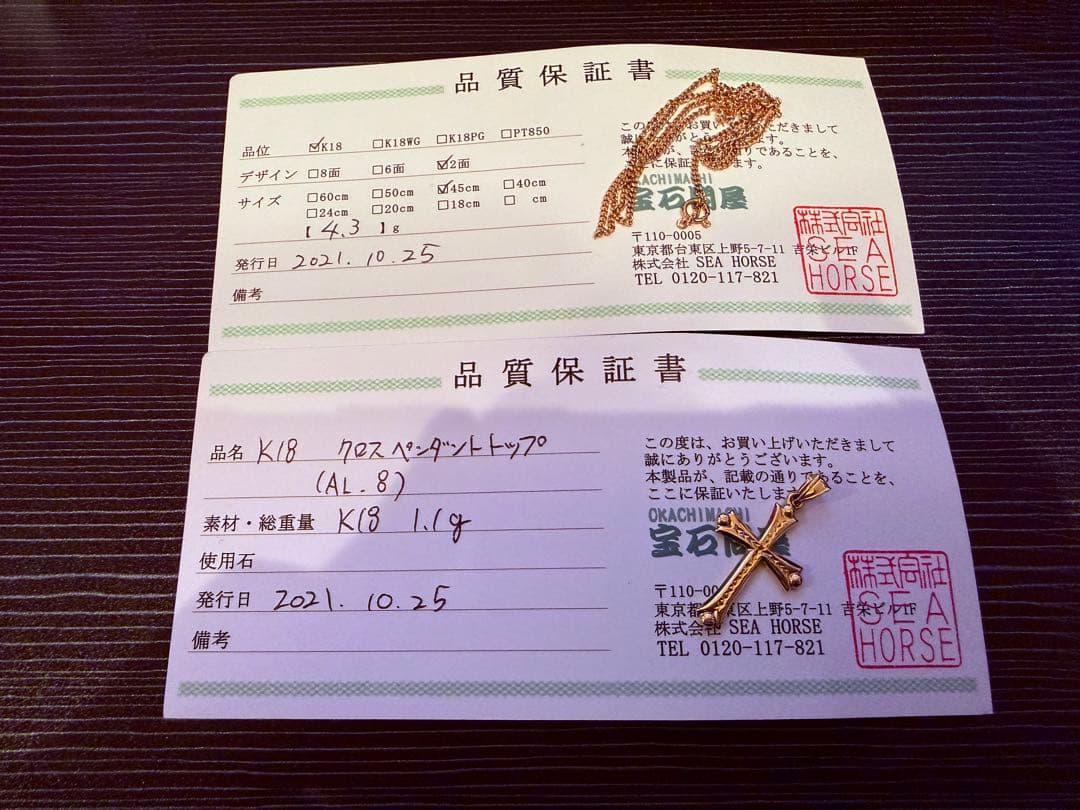 品質保証書
品位 ☑K18 ☐K18WG ☐K18PG ☐PT850
デザイン ☐8面 ☐6面 ☑2面
サイズ ☐60cm ☐50cm ☑45cm ☐40cm
☐24cm ☐20cm ☐18cm ☐ cm
【 4.3 】g
発行日 2021.10.25
備考
この お買い ただきまして
誠に りがとう ます。
本製品が、 りであることを、
ここに保証 ます。
OKACHIMACHI
宝石問屋
〒110-0005
東京都台東区上野5-7-11 吉栄ビル1F
株式会社 SEA HORSE
TEL 0120-117-821
株式会社
SEA
HORSE
品質保証書
品名 K18 クロスペンダントトップ
(AL.8)
素材・総重量 K18 1.1g
使用石
発行日 2021.10.25
備考
この度は、お買い上げいただきまして
誠にありがとうございます。
本製品が、記載の通りであることを、
ここに保証いたします
OKACHIMACHI
宝石問屋
〒110-00
東京都 東区上野5-7-11 吉栄ビル1F
株式会社 SEA HORSE
TEL 0120-117-821
株式会社
SEA
HORSE